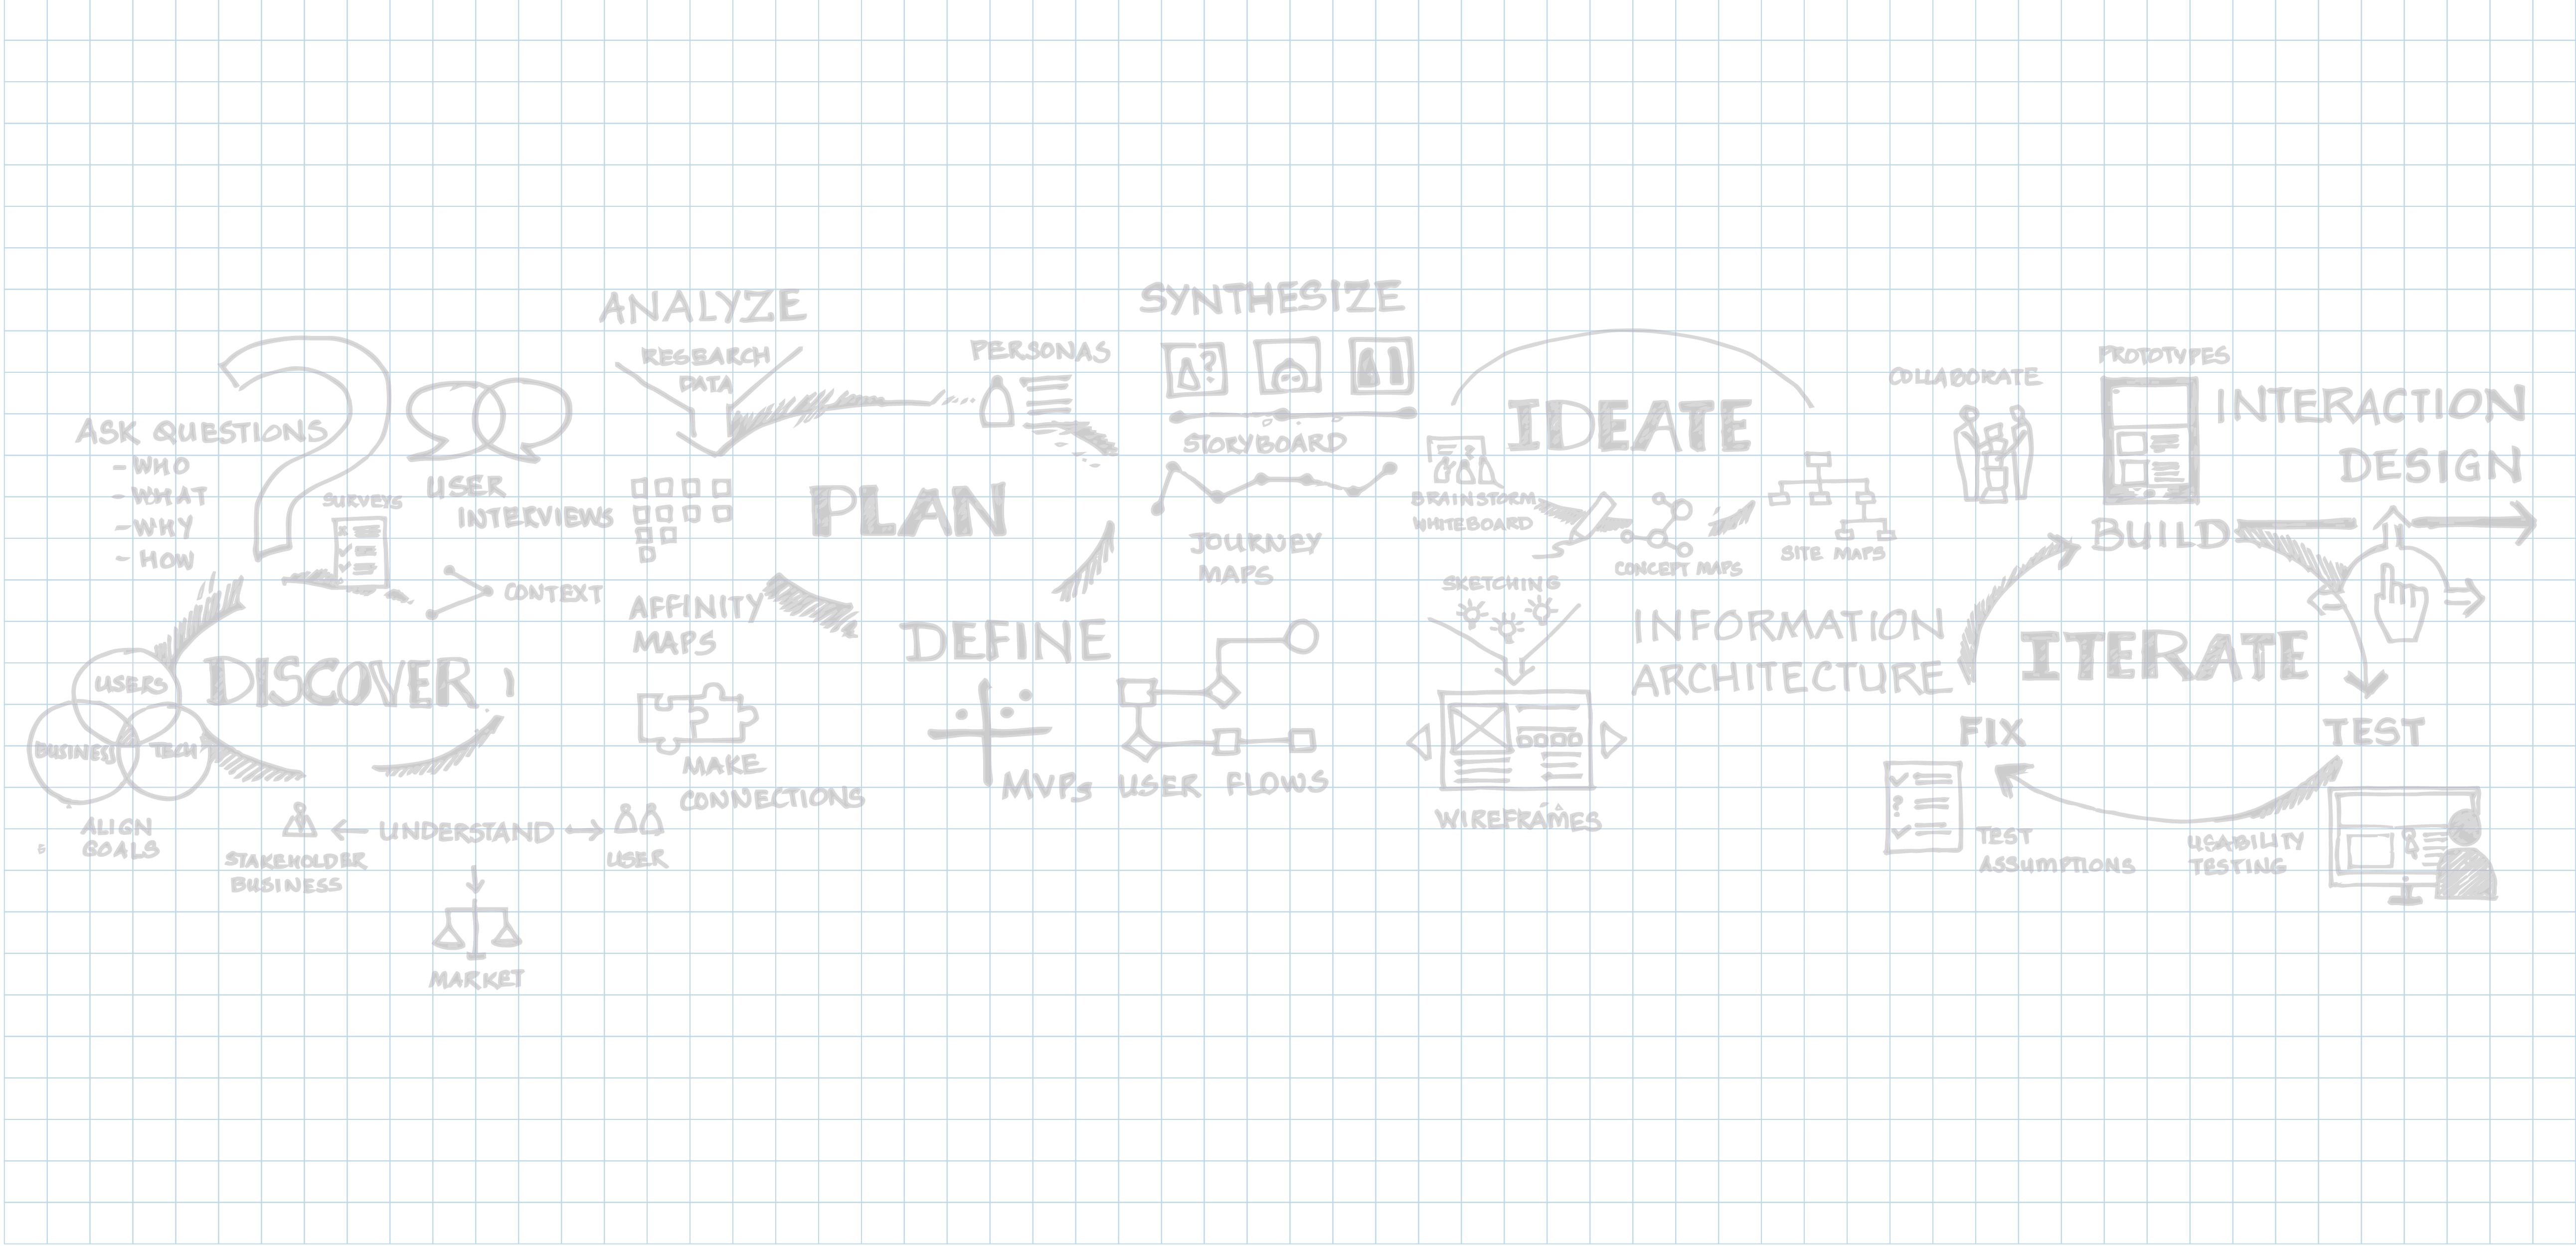 ASK QUESTIONS
- WHO
- WHAT
- WHY
- HOW
SURVEYS
USER
INTERVIEWS
CONTEXT
DISCOVER
USERS
BUSINESS
TECH
ALIGN
GOALS
STAKEHOLDER
BUSINESS
UNDERSTAND
USER
MARKET
ANALYZE
RESEARCH
DATA
AFFINITY
MAPS
MAKE
CONNECTIONS
PLAN
PERSONAS
DEFINE
MVPs
USER FLOWS
SYNTHESIZE
?
STORYBOARD
JOURNEY
MAPS
IDEATE
BRAINSTORM
WHITEBOARD
CONCEPT MAPS
SITE MAPS
SKETCHING
WIREFRAMES
INFORMATION
ARCHITECTURE
COLLABORATE
PROTOTYPES
INTERACTION
DESIGN
BUILD
ITERATE
FIX
TEST
?
TEST
ASSUMPTIONS
USABILITY
TESTING